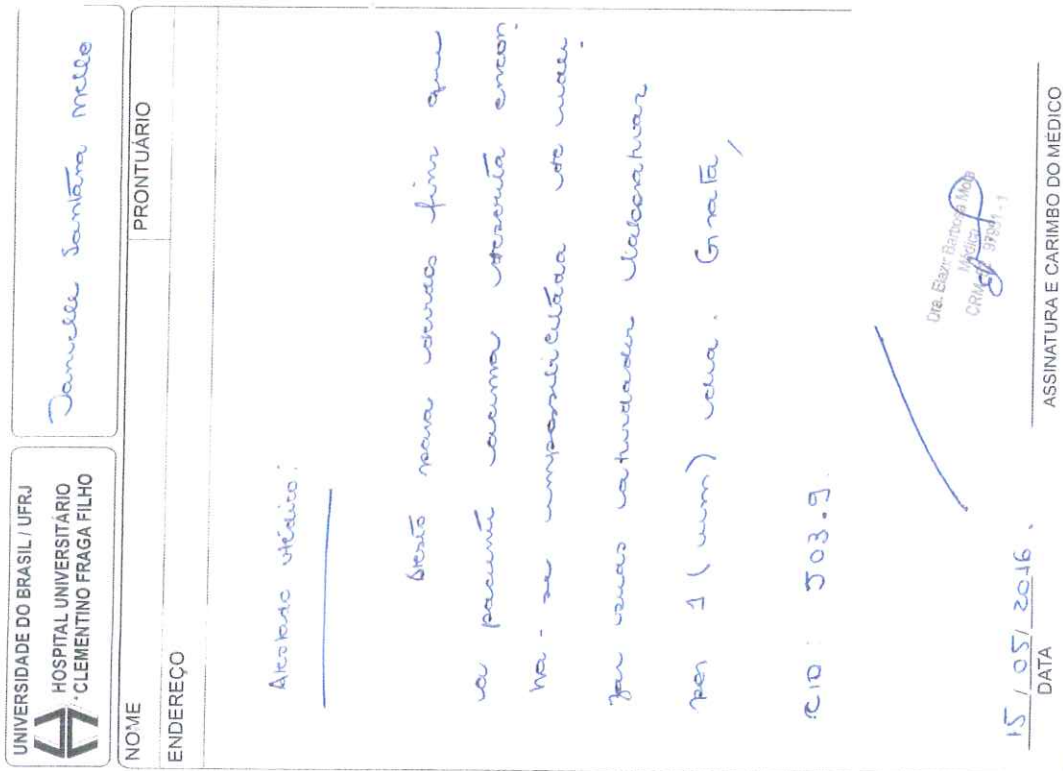 UNIVERSIDADE DO BRASIL / UFRJ
HOSPITAL UNIVERSITÁRIO
CLEMENTINO FRAGA FILHO
Danielle Santana Mello
NOME
PRONTUÁRIO
ENDEREÇO
Atestado Médico:
Atesto para devidos fins que
a paciente acima descrita encon-
tra-se impossibilitada de reali-
zar suas atividades laborativas
por 1 (um) dia. Grata,
CID: J03.9
Dra. Elazir Barbosa Mota
Médico
CRM 97891-1
15/05/2016.
DATA
ASSINATURA E CARIMBO DO MÉDICO